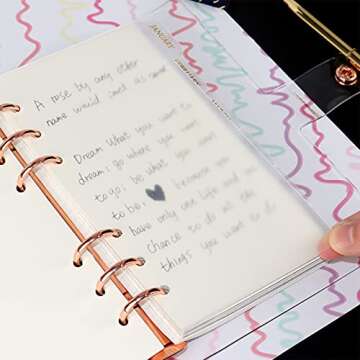 JANUARY
A rose by any other
name would smell as sweet
Dream What you want to
dream, go where you want
to go, be what you want
to be, because you
have only one life and one
chance to do all the
things you want to do